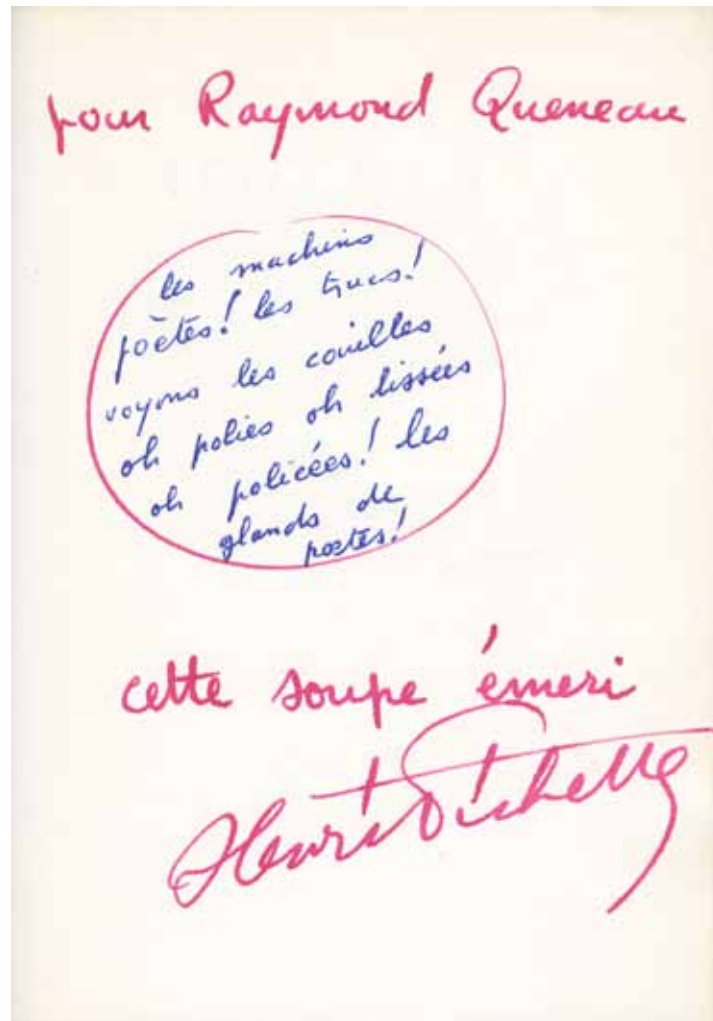 pour Raymond Queneau
les machins
poètes! les trucs!
voyons les couilles
oh polies oh lissées
oh policées! les
glands de
postes!
cette soupe émeri
Henri Pichette